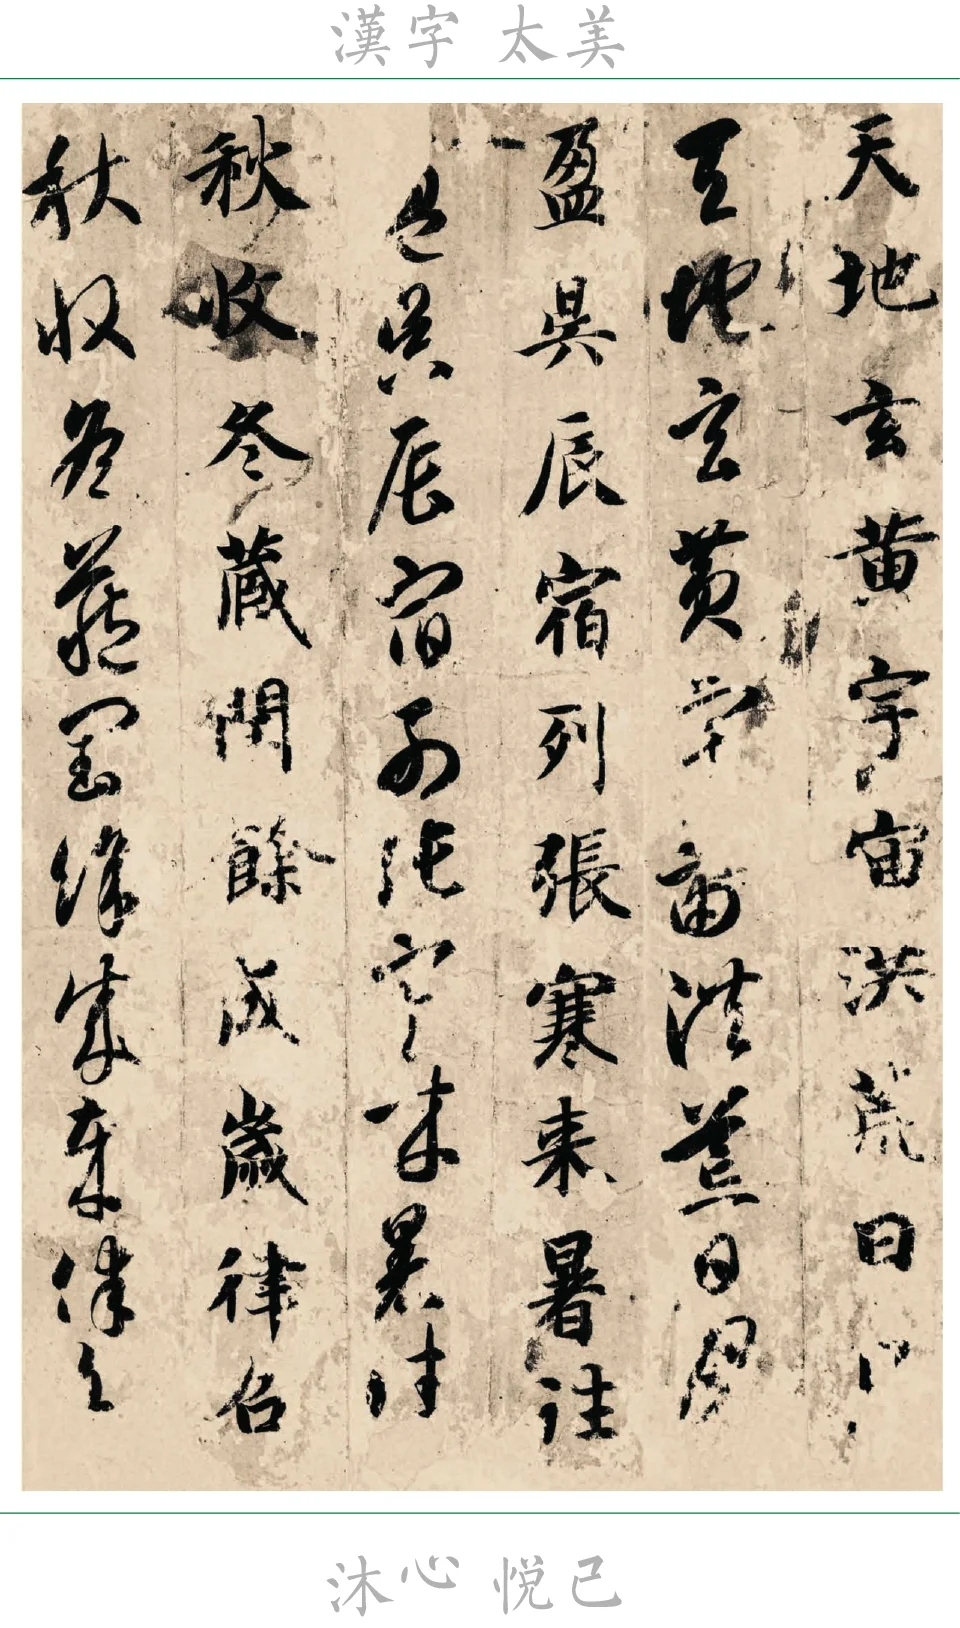 漢字 太美
天地玄黄宇宙洪荒日
天地玄黄宇宙洪荒日月
盈昃辰宿列張寒来暑往
盈昃辰宿列張寒来暑往
秋收冬藏閏餘成歲律召
秋收冬藏閏餘成歲律召
沐心 悦己